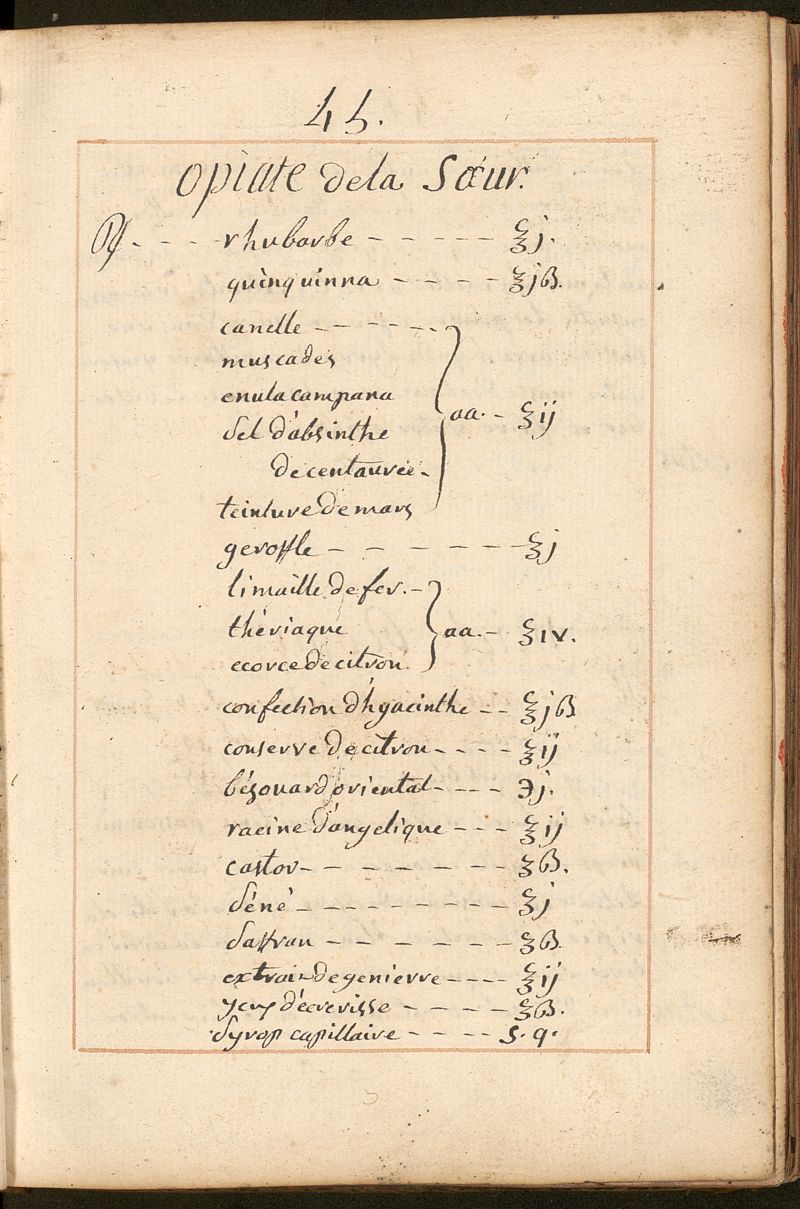 45.
opiate dela Sœur.
℞ - - - rhubarbe - - - - - ℥j.
quinquinna - - - - - ℥jß.
canelle - - - - - -
muscades
enulacampana
Sel d'absinthe aa. - ʒij
decentaurée -
teinture demars
geroffle - - - - - - ʒj
limaille defer. -
thériaque aa. - ʒıv.
ecorcedecitron
confection d'hyacinthe - - ℥jß
conserve decitron - - - - ℥ij
bésouard oriental - - - ℈j.
racine d'angelique - - - ʒij
castor - - - - - - - ʒß.
Séné - - - - - - - - ℥j
Saffran - - - - - - ʒß.
extrait degenievre - - - - ℥ij
yeux d'écrevisse - - - - ʒß.
Syrop capillaire - - - - S. q.